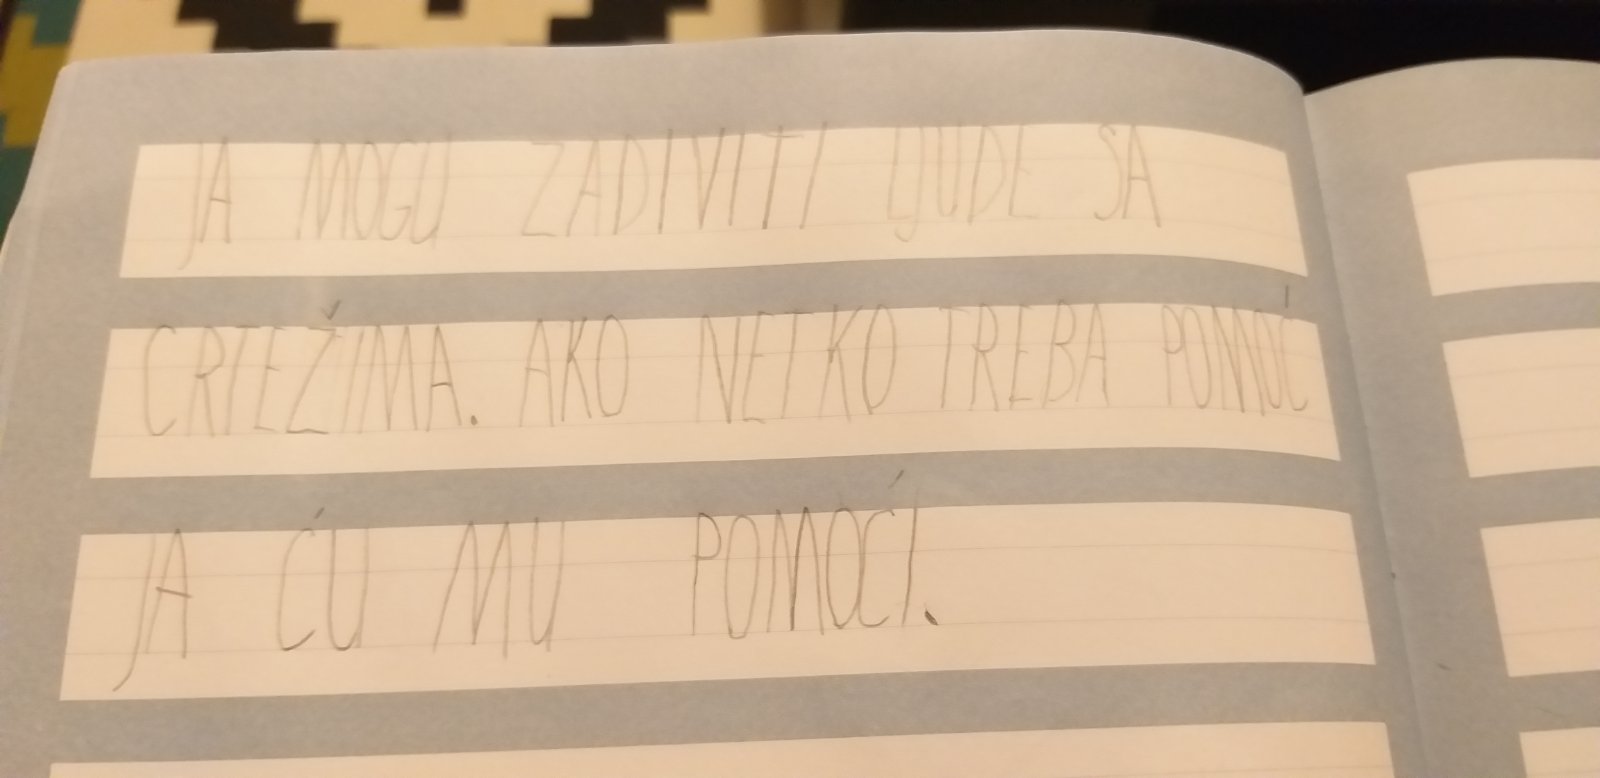 JA MOGU ZADIVITI LJUDE SA
CRTEŽIMA. AKO NETKO TREBA POMOĆ
JA ĆU MU POMOĆI.